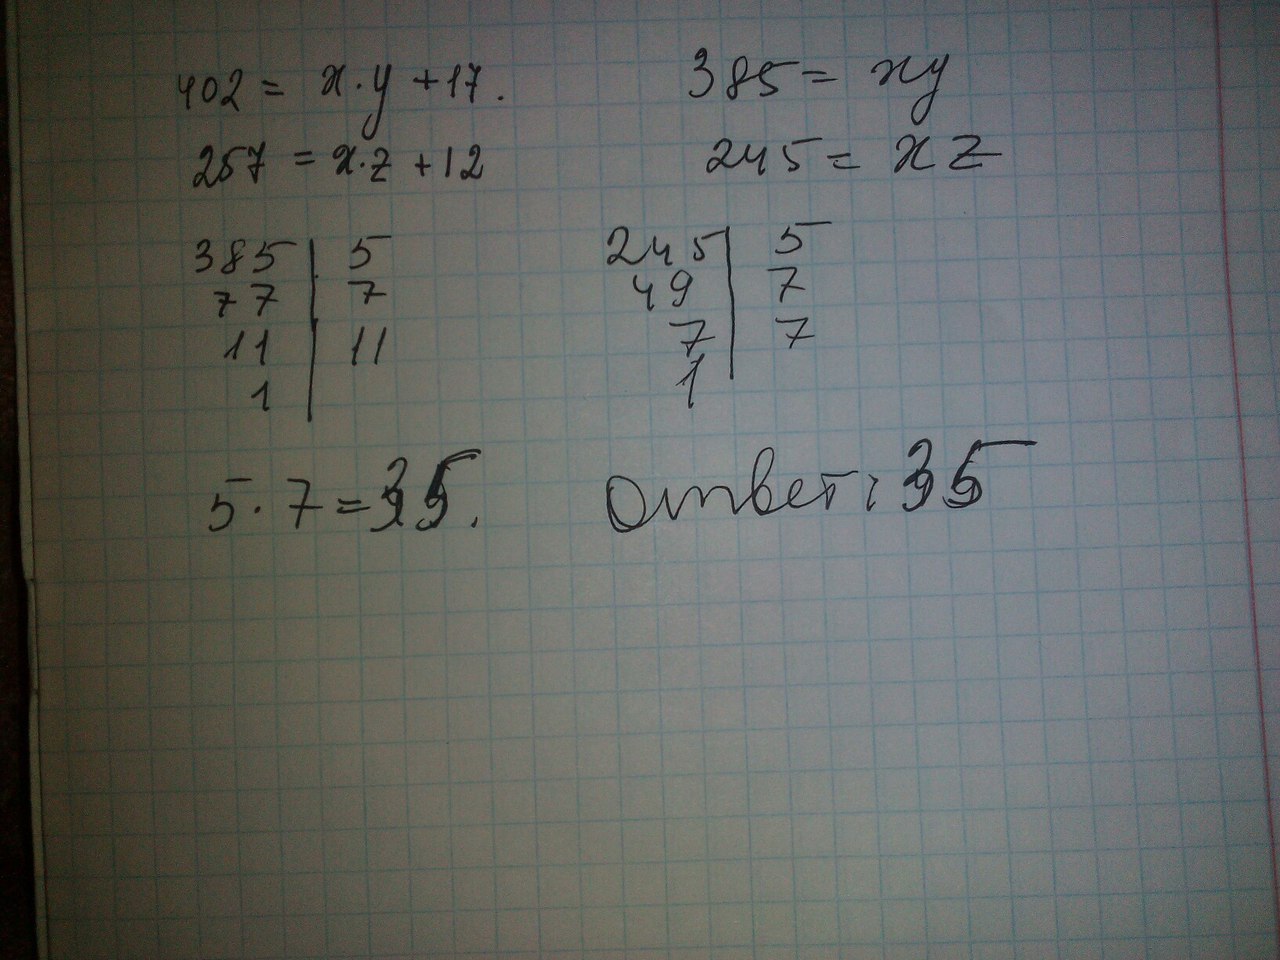 402 = x·y + 17.
257 = x·z + 12
385 = xy
245 = xz
385 | 5
77 | 7
11 | 11
1 |
245 | 5
49 | 7
7 | 7
1
5·7=35.
Ответ: 35